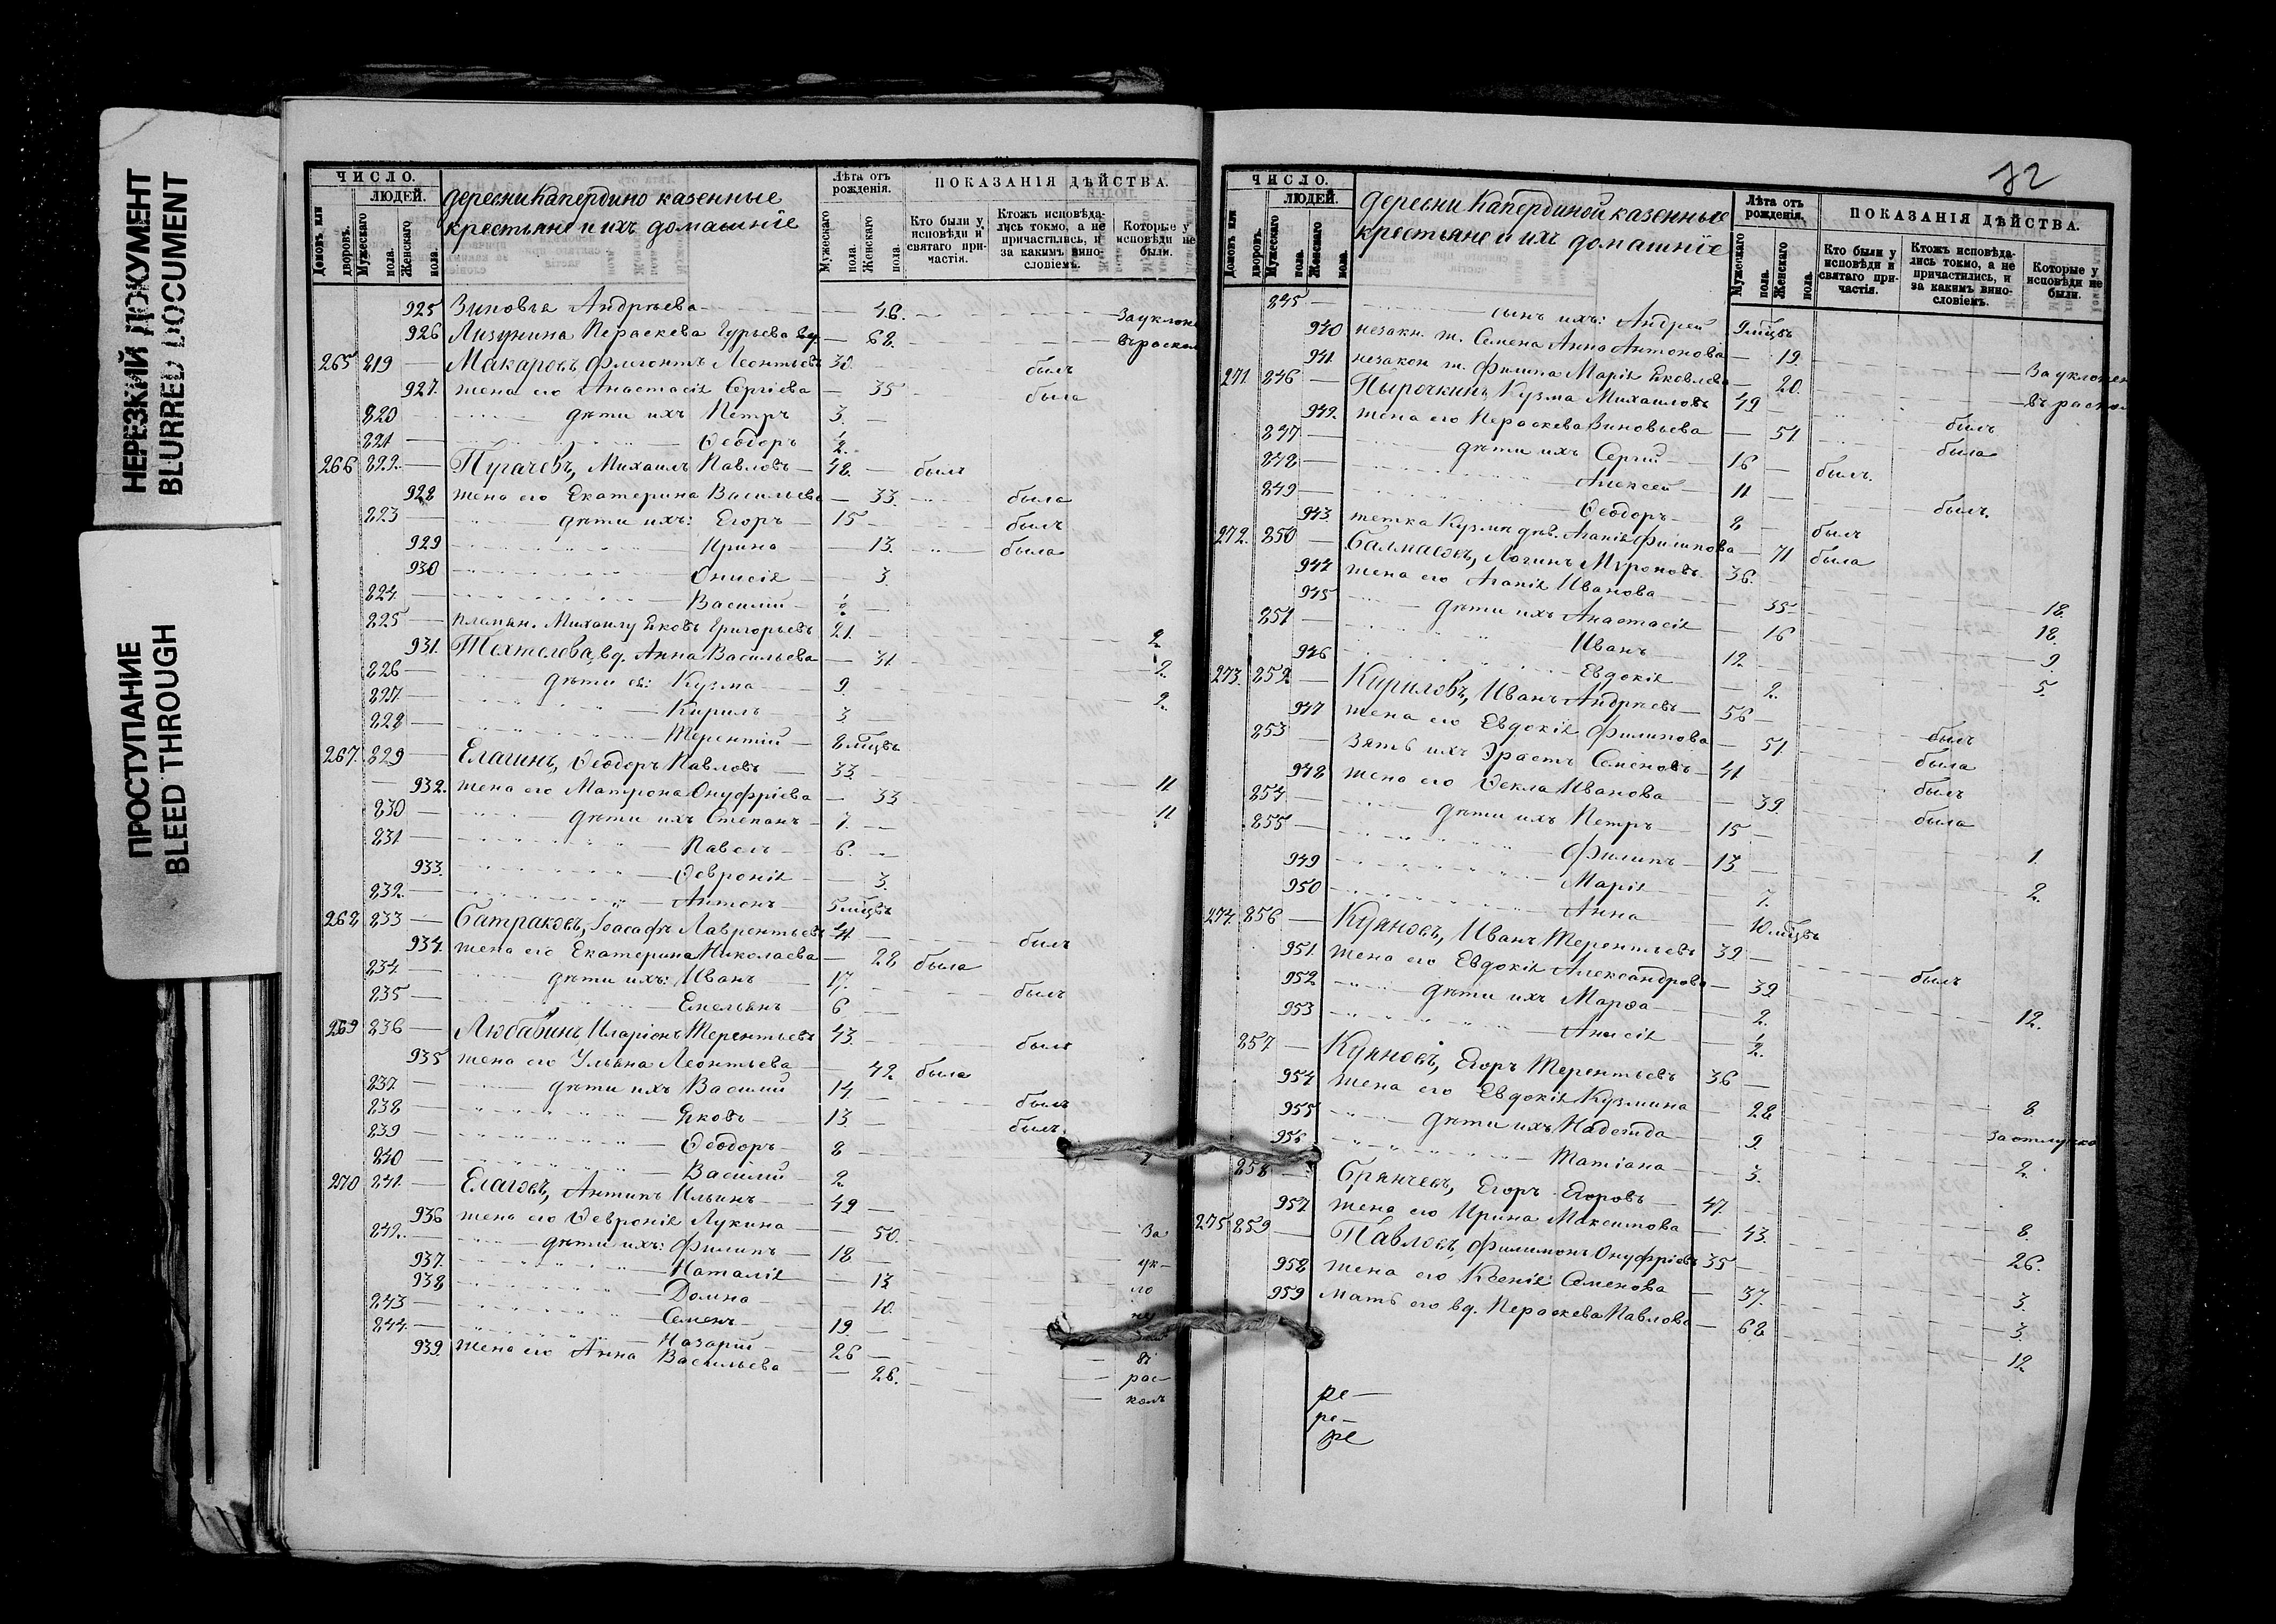 НЕРЕЗКИЙ ДОКУМЕНТ
BLURRED DOCUMENT
ПРОСТУПАНИЕ
BLEED THROUGH
ЧИСЛО.
ЛЮДЕЙ.
Домовъ или дворовъ.
Мужескаго пола.
Женскаго пола.
деревни Капердино казенные
крестьяне и ихъ домашніе
Лѣта отъ рожденія.
Мужескаго пола.
Женскаго пола.
ПОКАЗАНІЯ ДѢЙСТВА.
Кто были у исповѣди и святаго причастія.
Ктожъ исповѣдались токмо, а не причастились, и за какимъ винословіемъ.
Которые у исповѣди не были.
925 Зиновья Андрѣева 46. За уклон
926 Лизунина Пераскева Гурьева вд. 68. въ раскол
265 819 Макаровъ Флегонтъ Леонтьевъ 30. былъ
927. жена его Анастасія Сергіева 35 была
820 дѣти их Петръ 3.
821 Ѳеодоръ 1/2.
266 822. Пугачевъ, Михаилъ Павловъ 48. былъ
928 жена его Екатерина Васильева 33. была
823 дѣти ихъ: Егоръ 15 былъ
929 Ирина 13. была
930 Онисія 3.
824. Василій 1/2
825 племян. Михаилу Яковъ Григорьевъ 21. 2.
931. Техтелева, вд. Анна Васильева 31. 2.
826 дѣти ея: Кузма 9. 2.
827. Кирилъ 3
828 Терентій 8 мѣцвъ
267. 829 Елагинъ, Ѳеодоръ Павловъ 33
932. жена его Матрона Онуфріева 33 11
830 дѣти ихъ Степанъ 7. 11
831 Павелъ 6.
933. Ѳевронія 3.
832. Антонъ 5 мѣцвъ
268 833 Батраковъ, Іоасафъ Лаврентьевъ 41 былъ
934. жена его Екатерина Николаева 28 была
834. дѣти ихъ: Иванъ 17. былъ
835 Емельянъ 6
269 836 Любавинъ, Иларіонъ Терентьевъ 43. былъ
935 жена его Ульяна Леонтьева 42. была
837. дѣти ихъ Василій 14 былъ
838 Яковъ 13 былъ.
839 Ѳеодоръ 8
840 Василій 2.
270 841. Елаговъ, Антипъ Ильинъ 49
936 жена его Ѳевронія Лукина 50. За
842. дѣти ихъ: Филипъ 18 ук-
937. Наталія 13 ло
938 Домна 10.
843 Семенъ 19.
844. Назарій 26 въ
939. жена его Анна Васильева 26. рас-
колъ
72
ЧИСЛО.
ЛЮДЕЙ.
Домовъ или дворовъ.
Мужескаго пола.
Женскаго пола.
деревни Капердиной казенные
крестьяне и ихъ домашніе
Лѣта отъ рожденія.
Мужескаго пола.
Женскаго пола.
ПОКАЗАНІЯ ДѢЙСТВА.
Кто были у исповѣди и святаго причастія.
Ктожъ исповѣдались токмо, а не причастились, и за какимъ винословіемъ.
Которые у исповѣди не были.
845 сынъ ихъ: Андрей 9 мѣцвъ
940 незакн. ж. Семена Анна Антонова 19. За уклонен
941 незакон ж. Филипа Марія Яковлева 20. въ раскол
271 846 Пырочкинъ Кузма Михаиловъ 49 былъ
942. жена его Пераскева Зиновьева 51 была
847 дѣти ихъ Сергій 16 былъ.
848 Алексей 11 былъ.
849 Ѳеодоръ 8 былъ
943. тетка Кузми дѣв. Агапія Филипова 71 была
272. 850 Балмаевъ, Логинъ Мѵроновъ 36. 18.
944 жена его Агапія Иванова 35 18.
945 дѣти ихъ Анастасія 16 9
851 Иванъ 12 5.
946 Евдокія 2.
273. 852 Кириловъ, Иванъ Андрѣевъ 56 былъ
947 жена его Евдокія Филипова 51 была
853 Зять ихъ Эрастъ Семеновъ 41 былъ
948 жена его Ѳекла Иванова 39. была
854 дѣти ихъ Петръ 15 1.
855 Филипъ 13 2.
949 Марія 7.
950 Анна 10 мѣцвъ
274. 856 Куяновъ, Иванъ Терентьевъ 39. былъ
951. жена его Евдокія Александрова 39 12.
952 дѣти ихъ Марѳа 2.
953 Анисія 1/2.
857 Куяновъ, Егоръ Терентьевъ 36 8
954 жена его Евдокія Кузмина 28 За отлучко
955 дѣти ихъ Надежда 9 2.
956 Татіана 3.
858 Брянчевъ, Егоръ Егоровъ 47. 8.
957 жена его Ирина Максимова 43. 26.
275 859 Павловъ, Филимонъ Онуфріевъ 35 3.
958 жена его Ксенія Семенова 37. 3.
959 мать его вд. Пераскева Павлова 68 12
ре—
ре—
ре